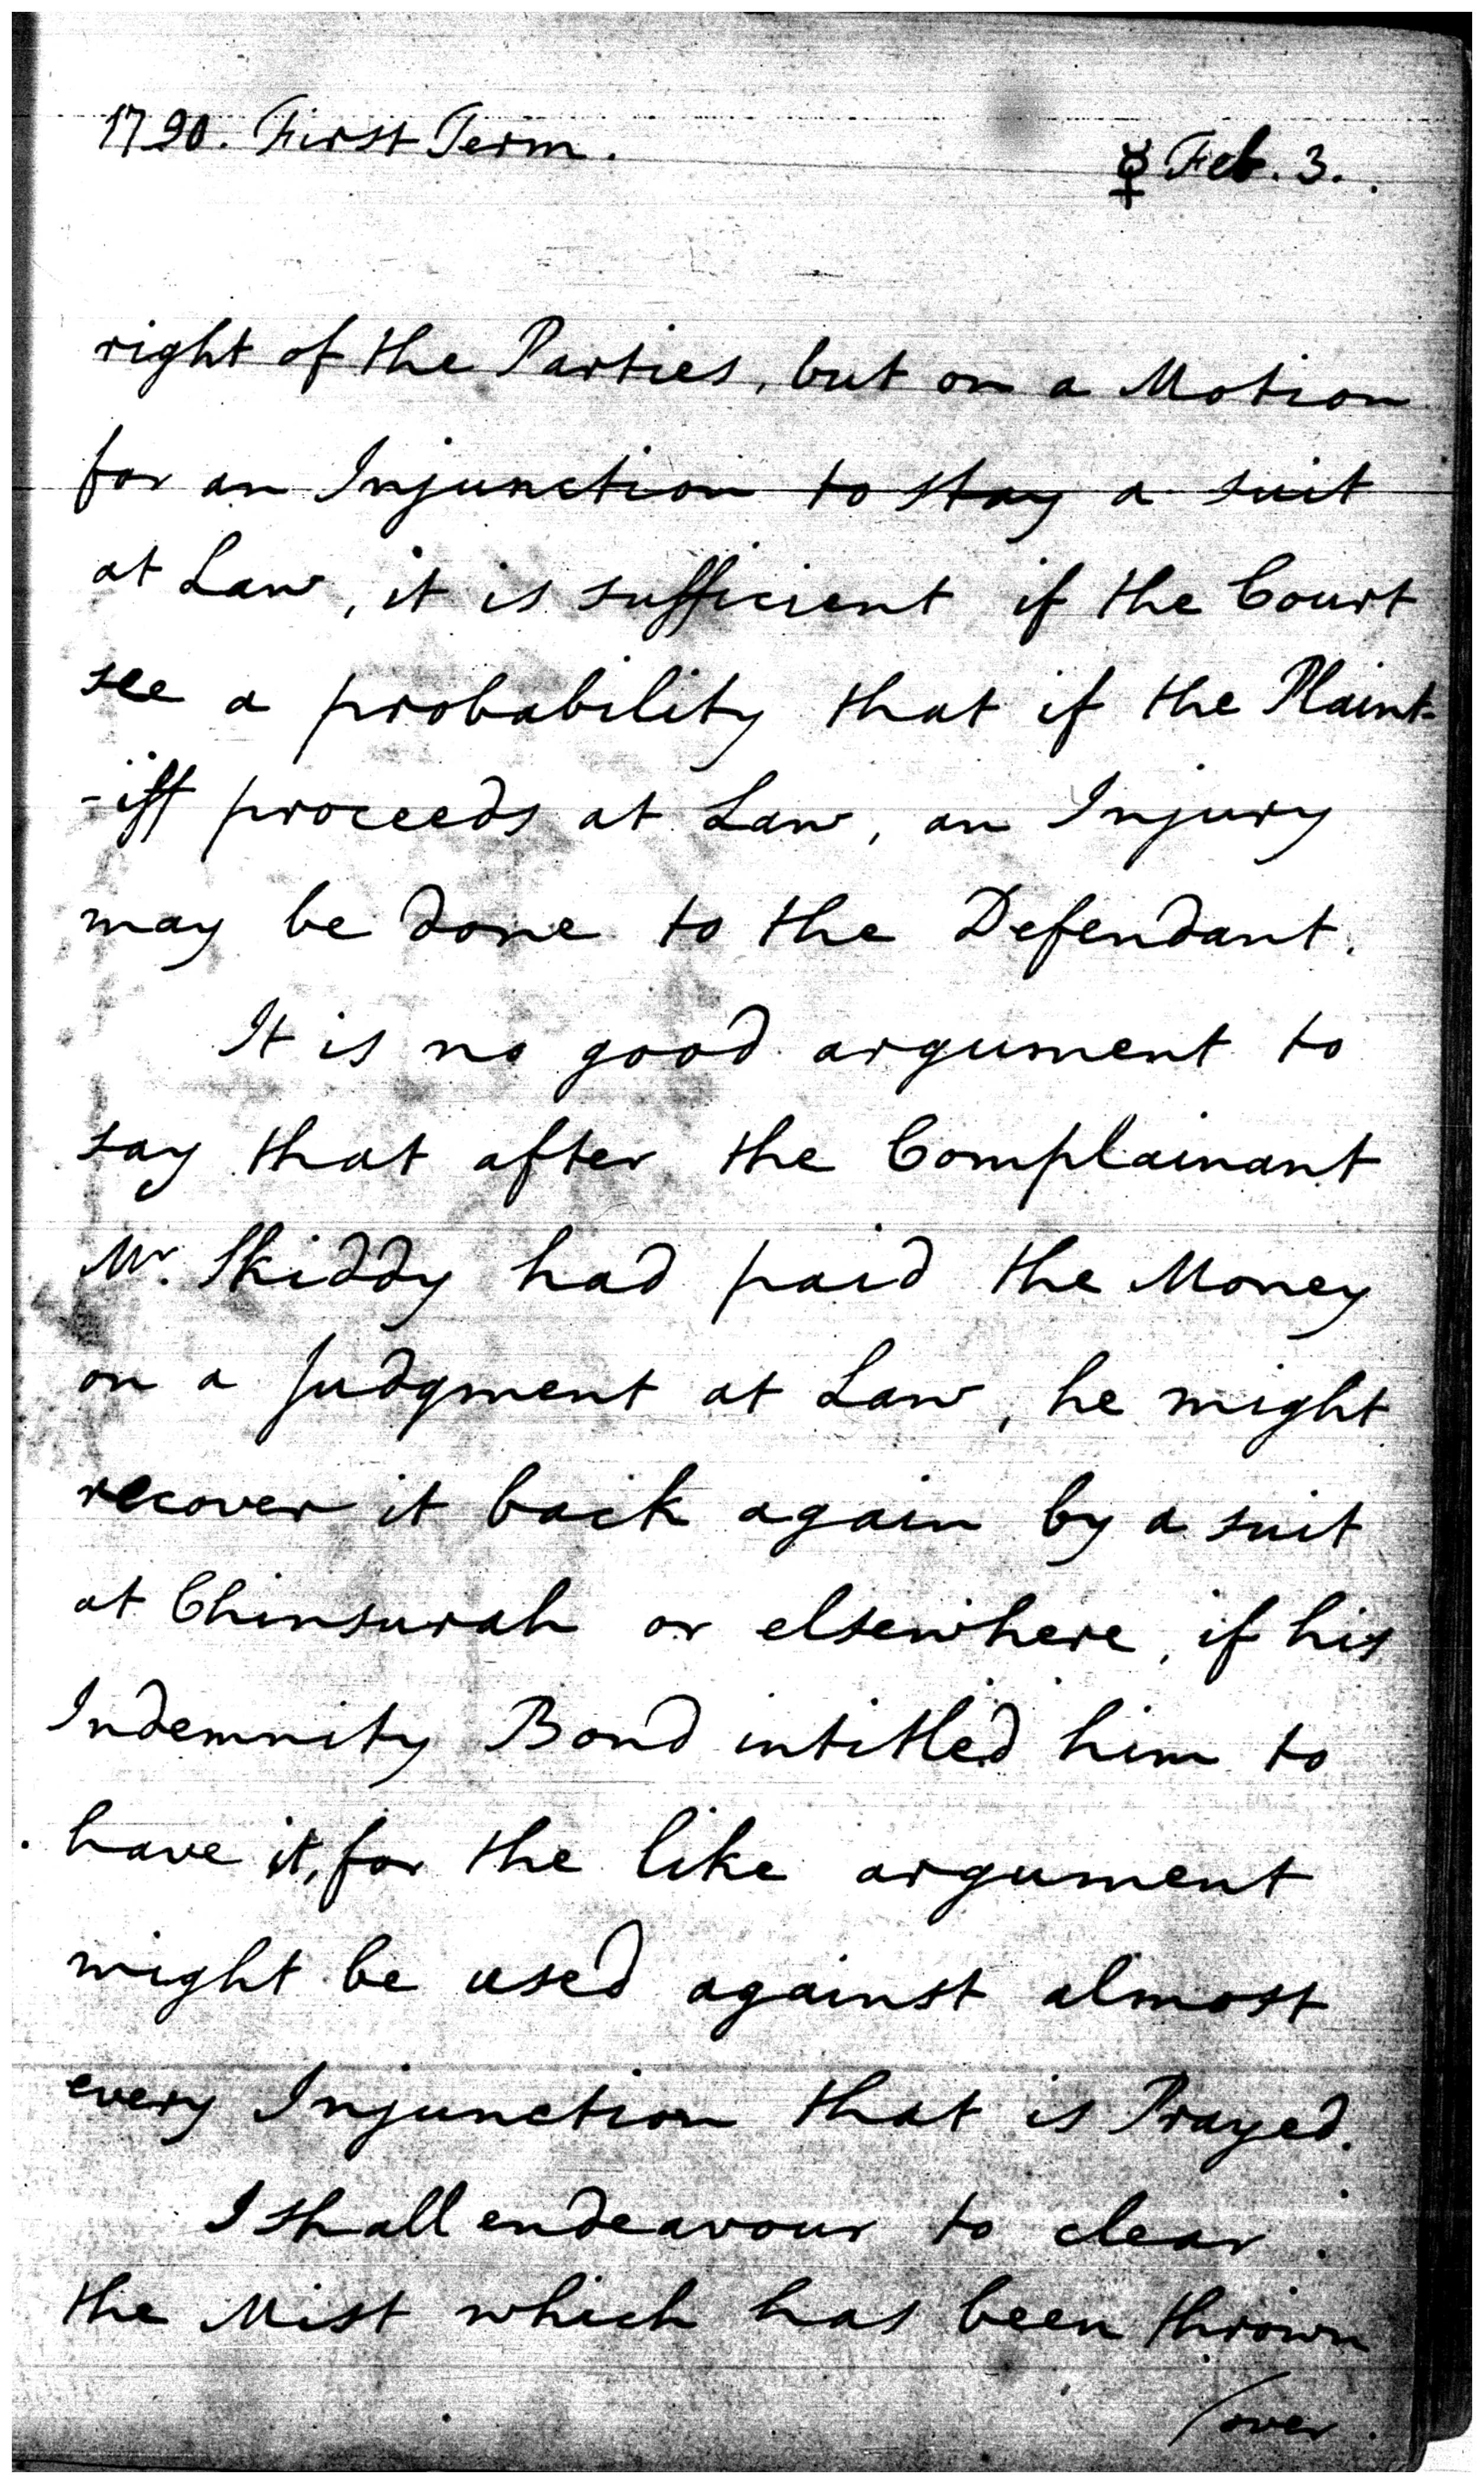 1790. First Term.
☿ Feb. 3.
right of the Parties, but on a Motion
for an Injunction to stay a suit
at Law, it is sufficient if the Court
see a probability that if the Plaint-
-iff proceeds at Law, an Injury
may be done to the Defendant.
It is no good argument to
say that after the Complainant
Mr. Skiddy had paid the Money
on a Judgment at Law, he might
recover it back again by a suit
at Chinsurah or elsewhere, if his
Indemnity Bond intitled him to
have it, for the like argument
might be used against almost
every Injunction that is Prayed.
I shall endeavour to clear
the Mist which has been thrown
/over